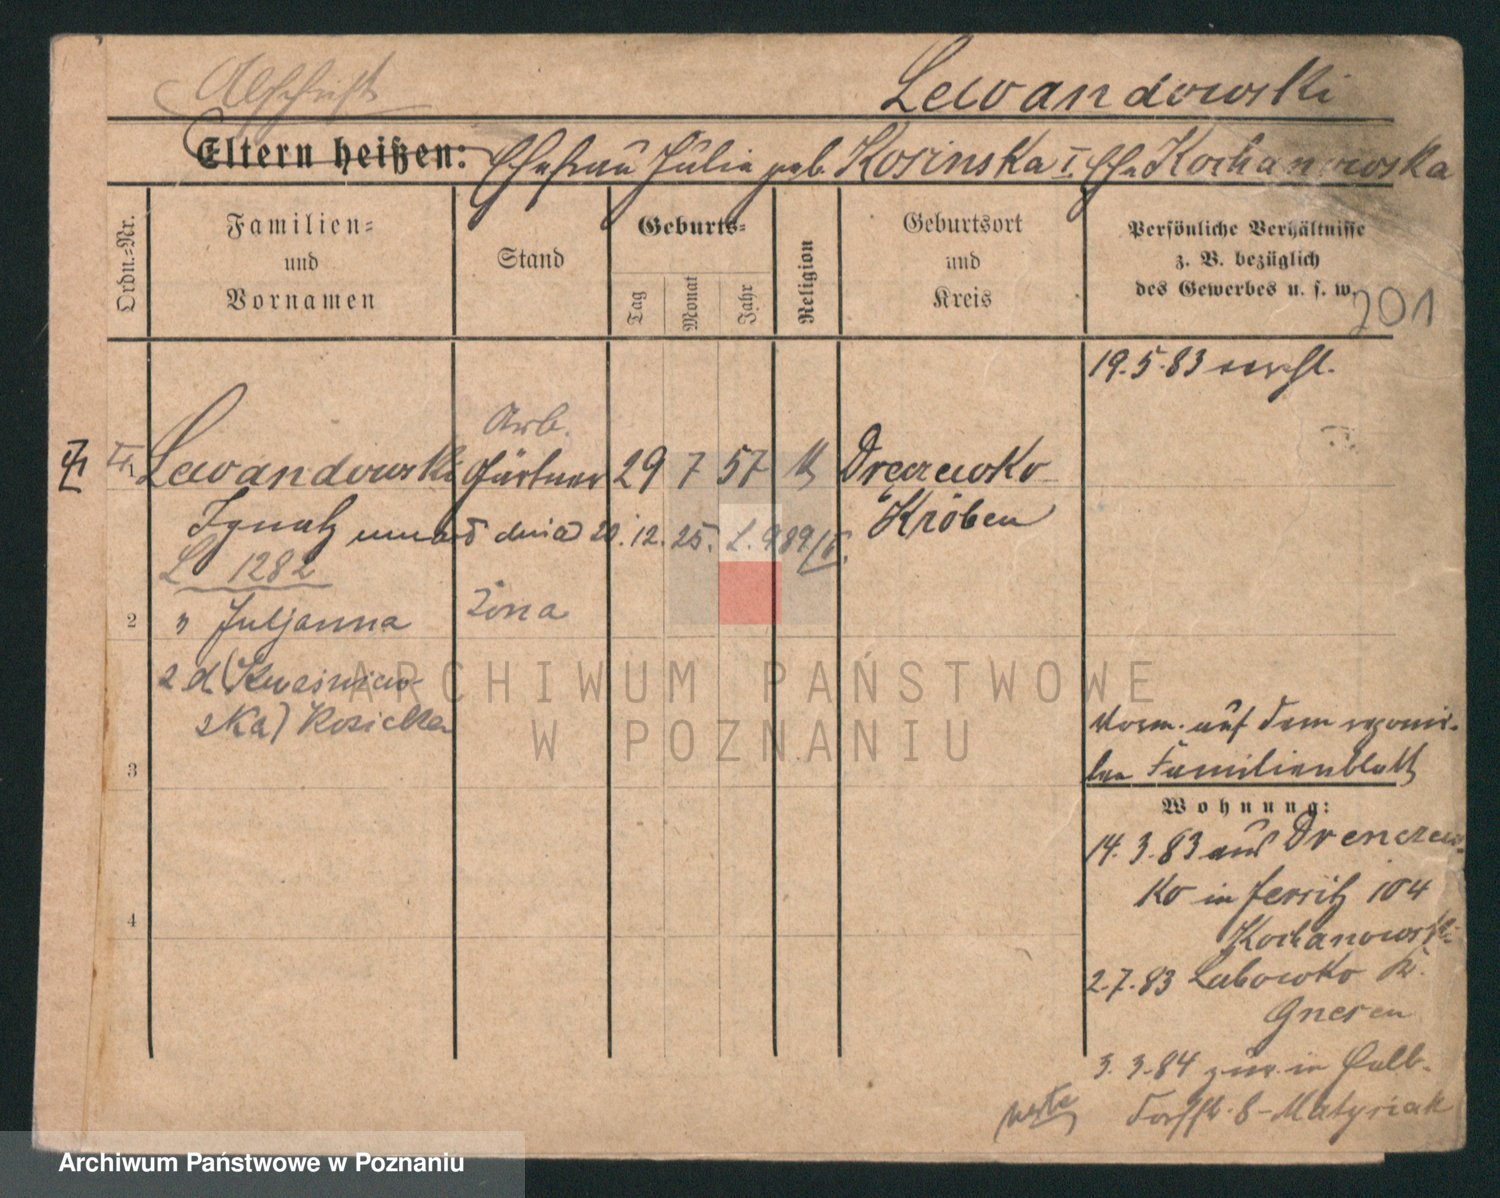 Abschrift
Lewandowski
Eltern heißen: Ehefrau Julie geb. Kosinska I. Ehe Kochanowska
Ordn.-Nr.
Familien-
und
Vornamen
Stand
Geburts-
Tag
Monat
Jahr
Religion
Geburtsort
und
Kreis
Persönliche Verhältnisse
z. B. bezüglich
des Gewerbes u. s. w.
201
19.5.83
Arb.
Lewandowski Gärtner 29 7 57 Dręczewko
Ignatz umarł dnia 20.12.25. L. 989/
Kröben
L 1282
2 " Juljanna żona
2 d (Kwaśniew-
ska) Kosicka
ARCHIWUM PAŃSTWOWE
W POZNANIU
3
Verm. auf dem
Familienblatt
Wohnung:
14.3.83 aus Drenczew-
ko in Jersitz 104
Kochanowski
2.7.83 Lubowko Kr.
Gnesen
4
3.3.84 zur. in Halb-
dorfstr. 8 - Matysiak
Archiwum Państwowe w Poznaniu